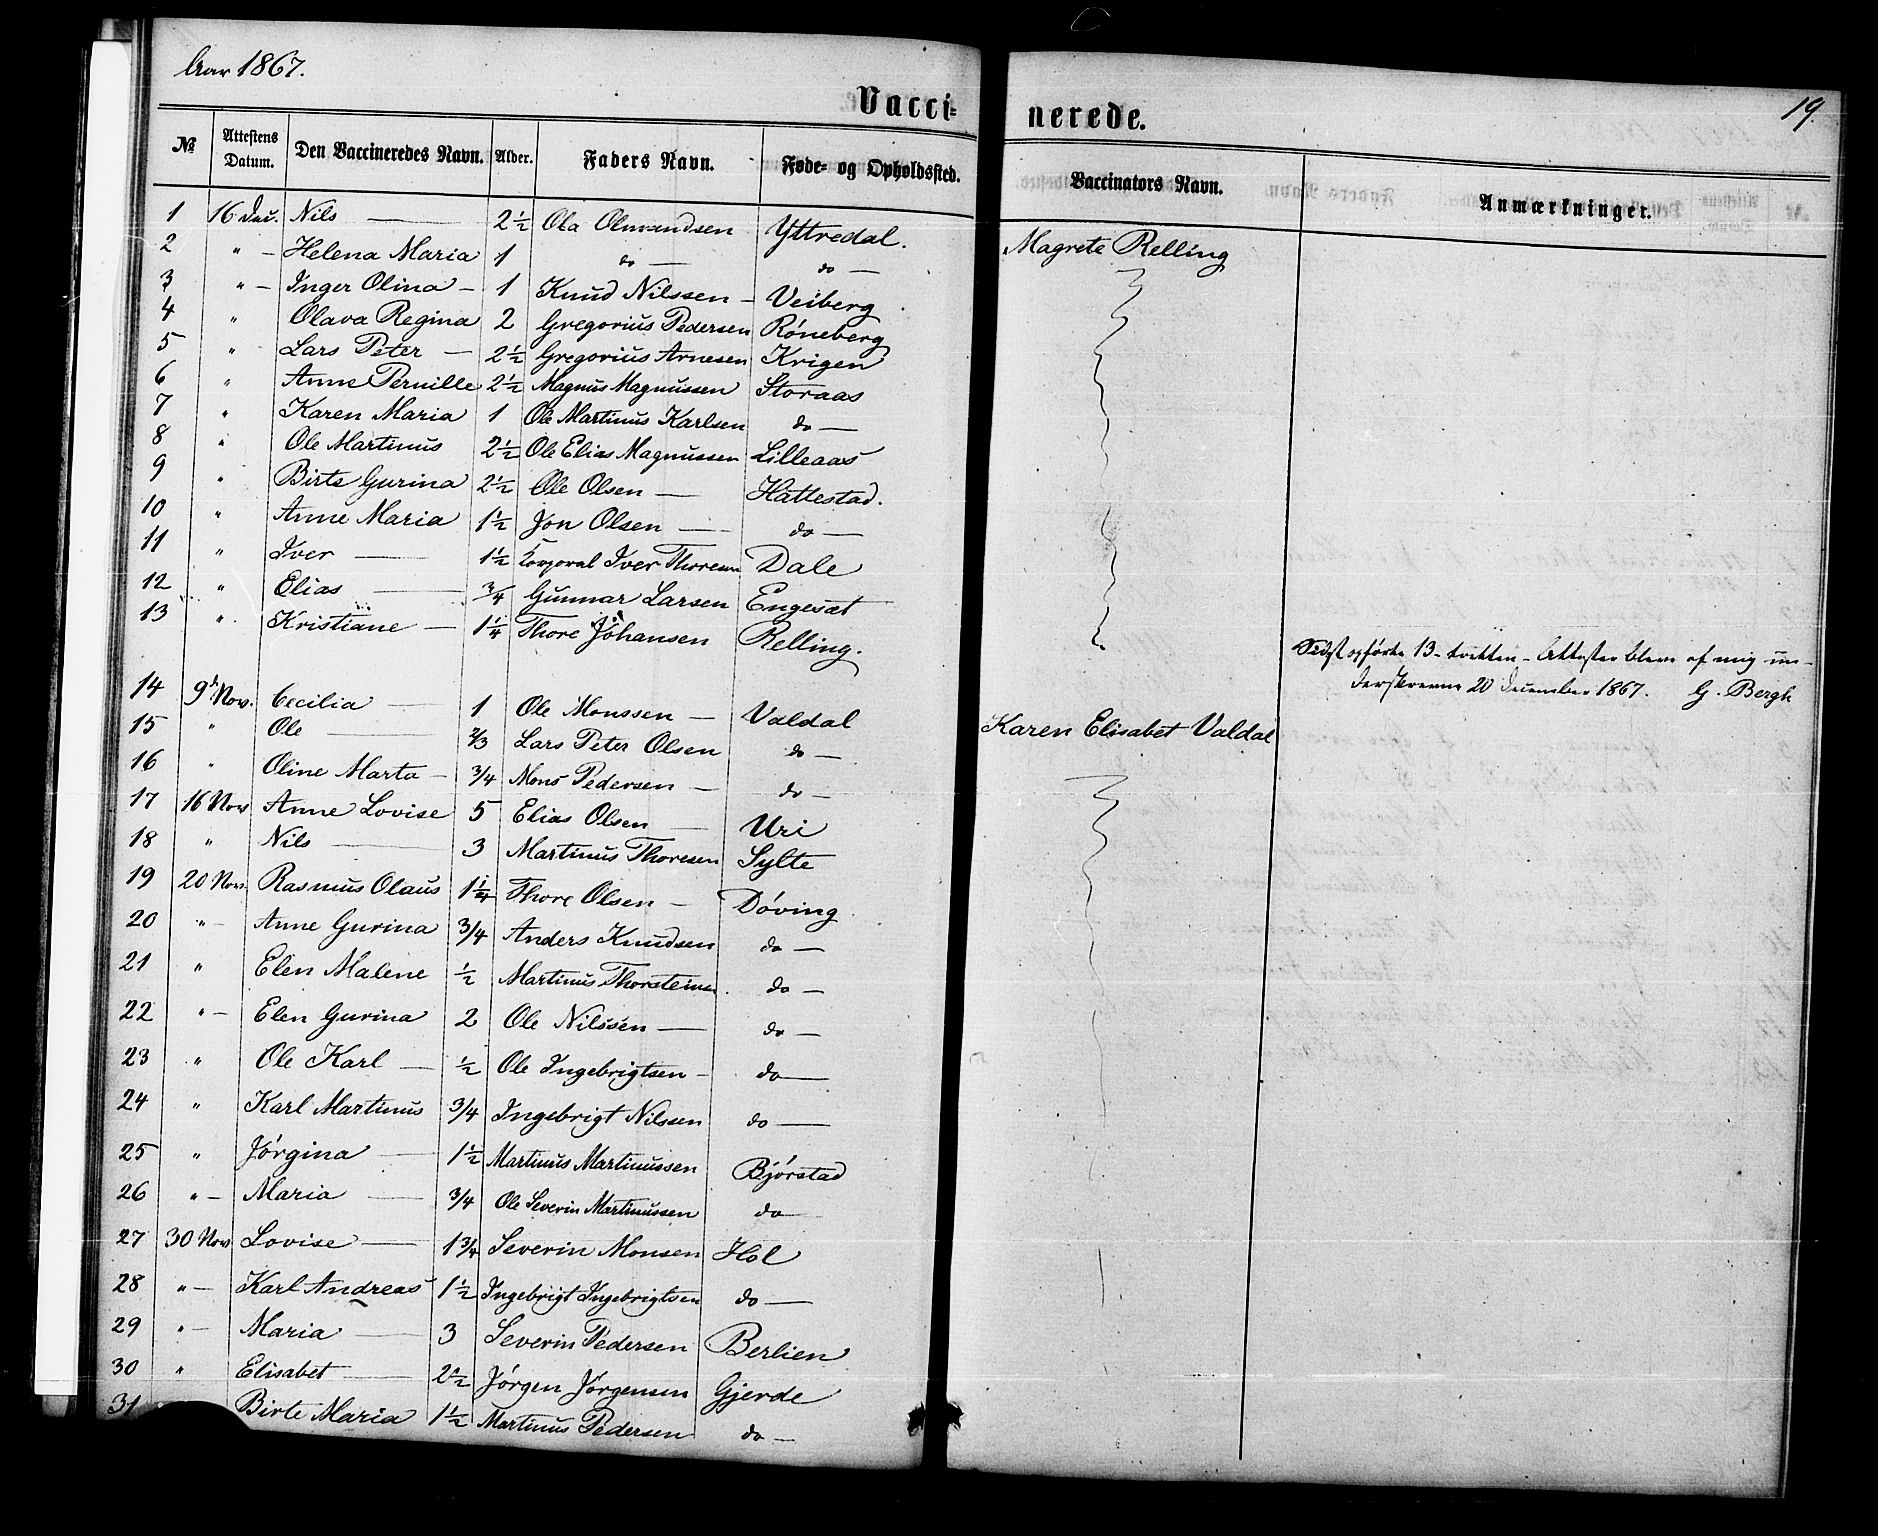 Aar 1867.
19.
Vacci- nerede.
№ Attestens Datum. Den Vaccineredes Navn. Alder. Faders Navn. Føde- og Opholdssted. Vaccinators Navn. Anmærkninger.
1 16 Dec. Nils — 2½ Ola Olmandsen Yttredal. Magrete Relling
2 " — Helena Maria 1 do — do —
3 " — Inger Olina — 1 Knud Nilssen — Veiberg
4 " Olava Regina 2 Gregorius Pedersen Róneberg
5 " Lars Peter — 2½ Gregorius Arnesen Krigen
6 " Anne Pernille 2½ Magnus Magnussen Storaas
7 " Karen Maria 1 Ole Martinus Karlsen do —
8 " Ole Martinus 2½ Ole Elias Magnussen Lilleaas
9 " Birte Gurina 2½ Ole Olsen — Hattestad.
10 " Anne Maria 1½ Jon Olsen — do —
11 " Iver — 1½ Korporal Iver Thoresen Dale
12 " Elias — ¾ Gunnar Larsen Engesæt
13 " Kristiane — 1¼ Thore Johansen Relling.
Sidst opførte 13 - tretten - Attester bleve af mig un-
derskrevne 20 december 1867. G. Bergh
14 9d Nov. Cecilia — 1 Ole Monssen — Valdal Karen Elisabet Valdal
15 " Ole — ⅔ Lars Peter Olsen do —
16 " Oline Marta — ¾ Mons Pedersen — do —
17 16 Nov Anne Lovise 5 Elias Olsen — Uri
18 " Nils — 3 Martinus Thoresen Sylte
19 20 Nov. Rasmus Olaus 1¼ Thore Olsen — Dóving
20 " — Anne Gurina ¾ Anders Knudsen do —
21 " Elen Malene ½ Martinus Thorsteinsen do —
22 " — Elen Gurina 2 Ole Nilssen — do —
23 " Ole Karl — ½ Ole Ingebrigtsen — do —
24 " Karl Martinus ¾ Ingebrigt Nilssen do —
25 " Jórgina — 1½ Martinus Martinussen Bjórstad
26 " — Maria — ¾ Ole Severin Martinussen do —
27 30 Nov Lovise — 1¾ Severin Monsen Hol
28 " — Karl Andreas 1½ Ingebrigt Ingebrigtsen do —
29 " — Maria — 3 Severin Pedersen Berlien
30 " Elisabet — 2½ Jórgen Jórgensen Gjerde
31 Birte Maria 1½ Martinus Pedersen do —